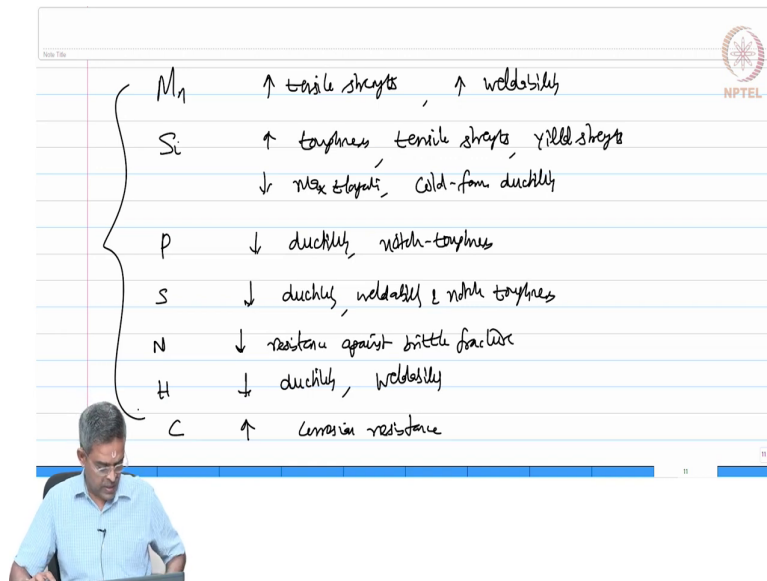 Note Title
NPTEL
Mn ↑ tensile strength, ↑ weldability
Si ↑ toughness, tensile strength, yield strength
↓ Max elongati, Cold-form ductility
P ↓ ductility, notch-toughness
S ↓ ductility, weldability & notch toughness
N ↓ resistance against brittle fracture
H ↓ ductility, weldability
C ↑ corrosion resistance
11
11